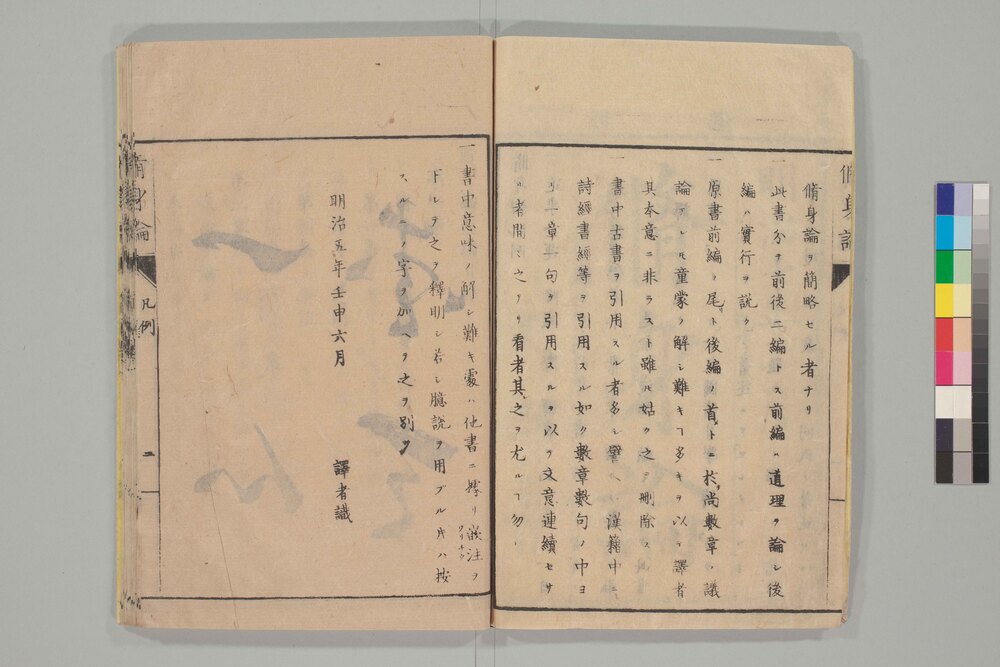 脩身論
脩身論ヲ簡略セル者ナリ
一此書分テ前後二編トス前編ハ道理ヲ論シ後
編ハ實行ヲ説ク
一原書前編ノ尾ト後編ノ首トニ於テ尚數章ノ議
論アレトモ童蒙ノ解シ難キヿ多キヲ以テ譯者
其本意ニ非ラスト雖トモ姑ク之ヲ刪除ス
一書中古書ヲ引用スル者多シ譬ヘハ漢籍中ニ
詩經書經等ヲ引用スル如ク數章數句ノ中ヨ
リ一章一句ヲ引用スルヲ以テ文意連續セサ
ル者間之アリ看者其之ヲ尤ルヿ勿レ
一書中意味ノ解シ難キ處ハ他書ニ據リ嵌注ヲ
下シテ之ヲ釋明シ若シ臆説ヲ用フル時ハ按
スルニノ字ヲ加ヘテ之ヲ別ツ
明治五年壬申六月
譯者識
脩身論
凡例
二